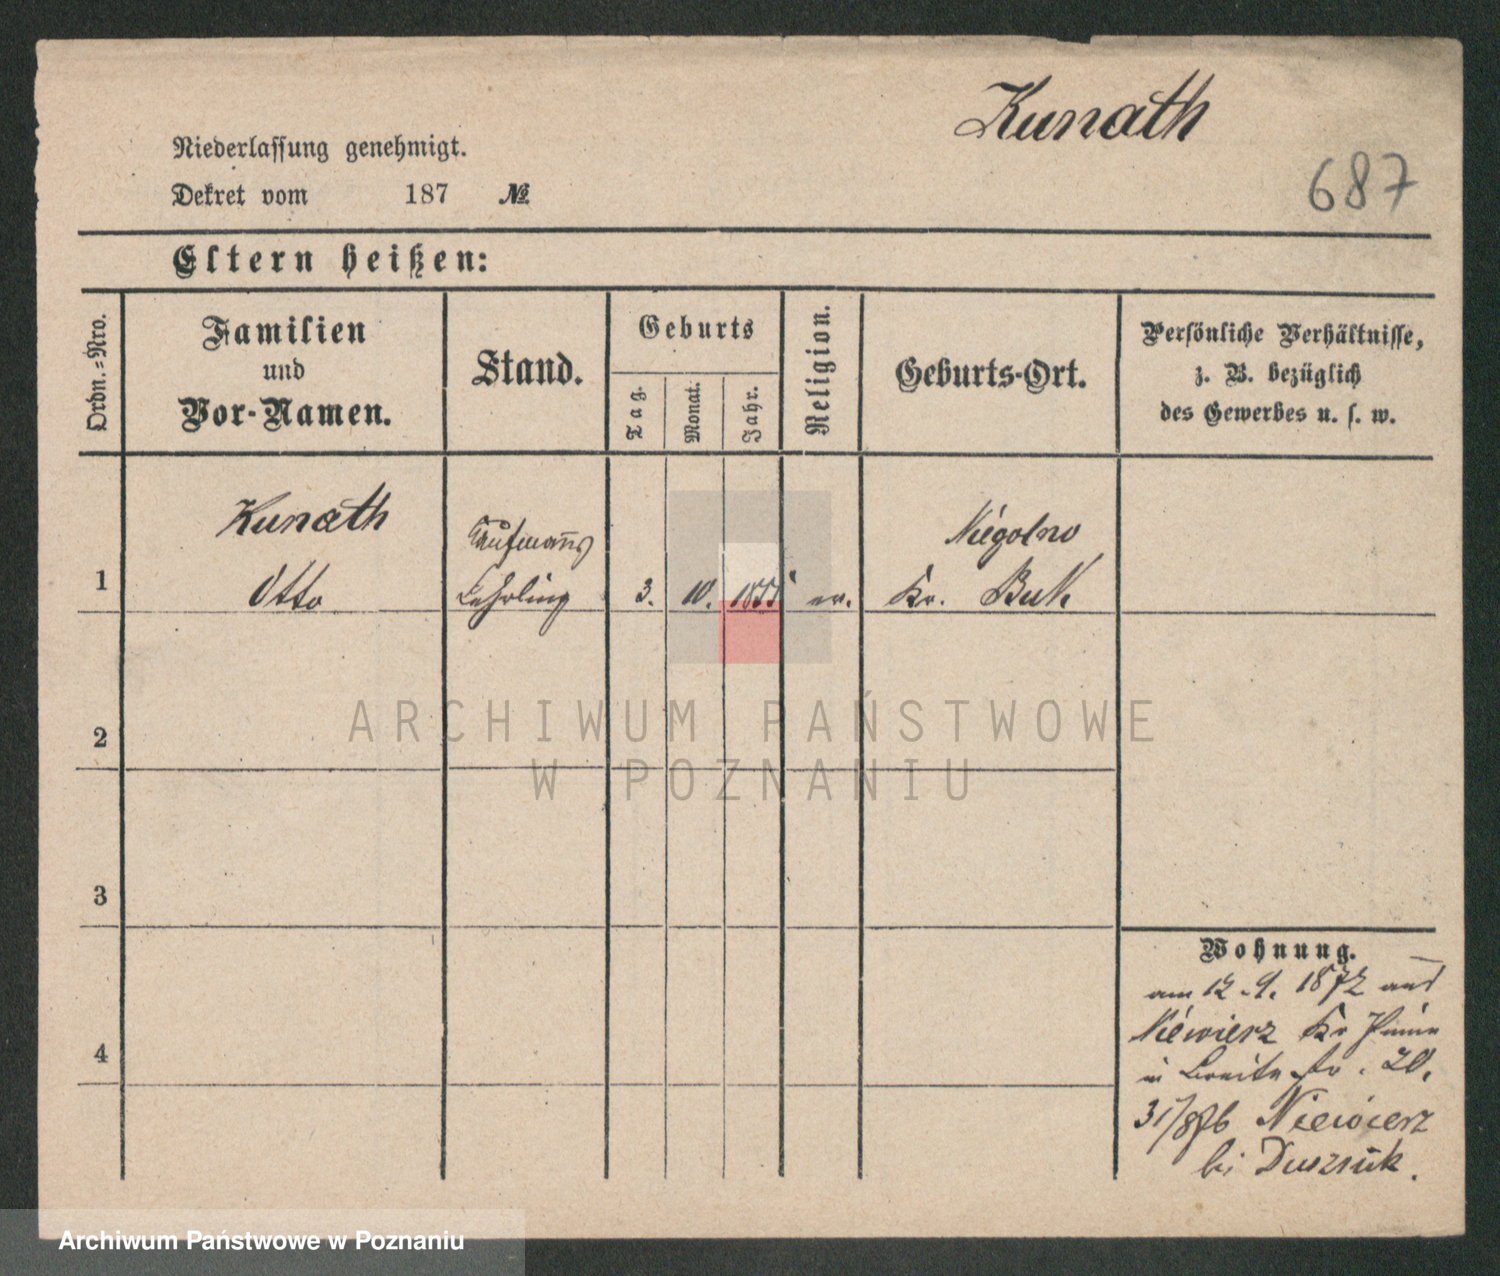 Kunath
687
Niederlassung genehmigt.
Dekret vom 187 №
Eltern heißen:
Ordn.=Nro.
Familien
und
Vor-Namen.
Stand.
Geburts
Tag.
Monat.
Jahr.
Religion.
Geburts-Ort.
Persönliche Verhältnisse,
z. B. bezüglich
des Gewerbes u. s. w.
Kunath
Kaufmanns
Niegolno
1 Otto Lehrling 3. 10. 1855 ev. Kr. Buk
2
3
4
Wohnung.
am 12.9.1872 aus
Niewierz Kr
in Breitestr. 20.
31/8 76 Niewierz
bei Dusznik.
ARCHIWUM PAŃSTWOWE
W POZNANIU
Archiwum Państwowe w Poznaniu